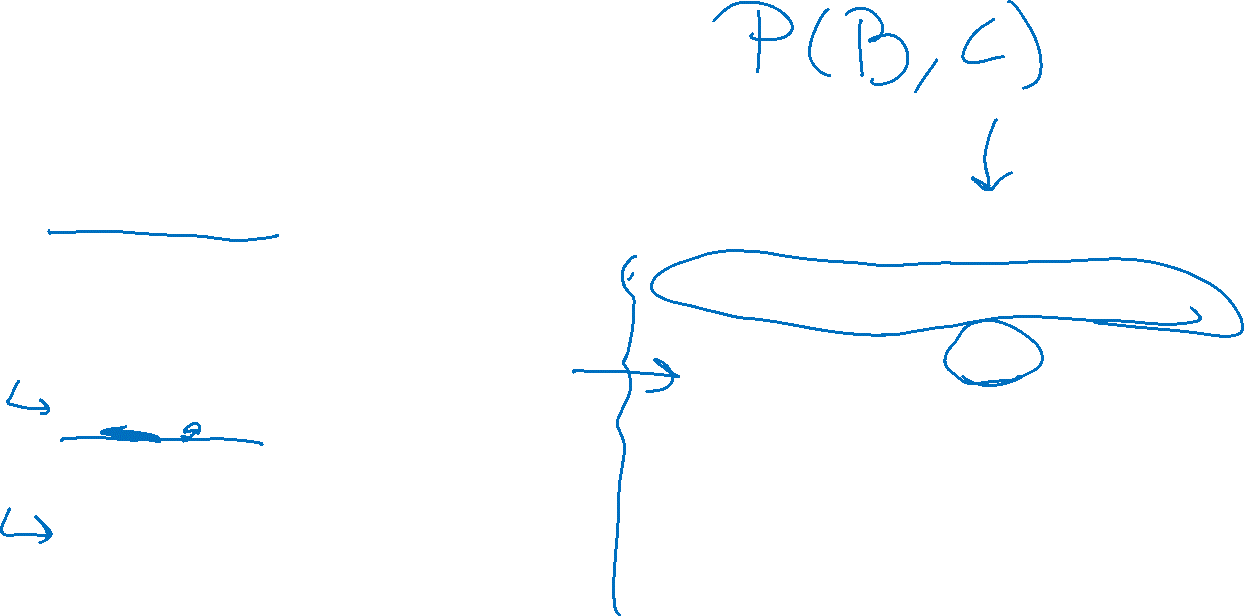 P(B, C)